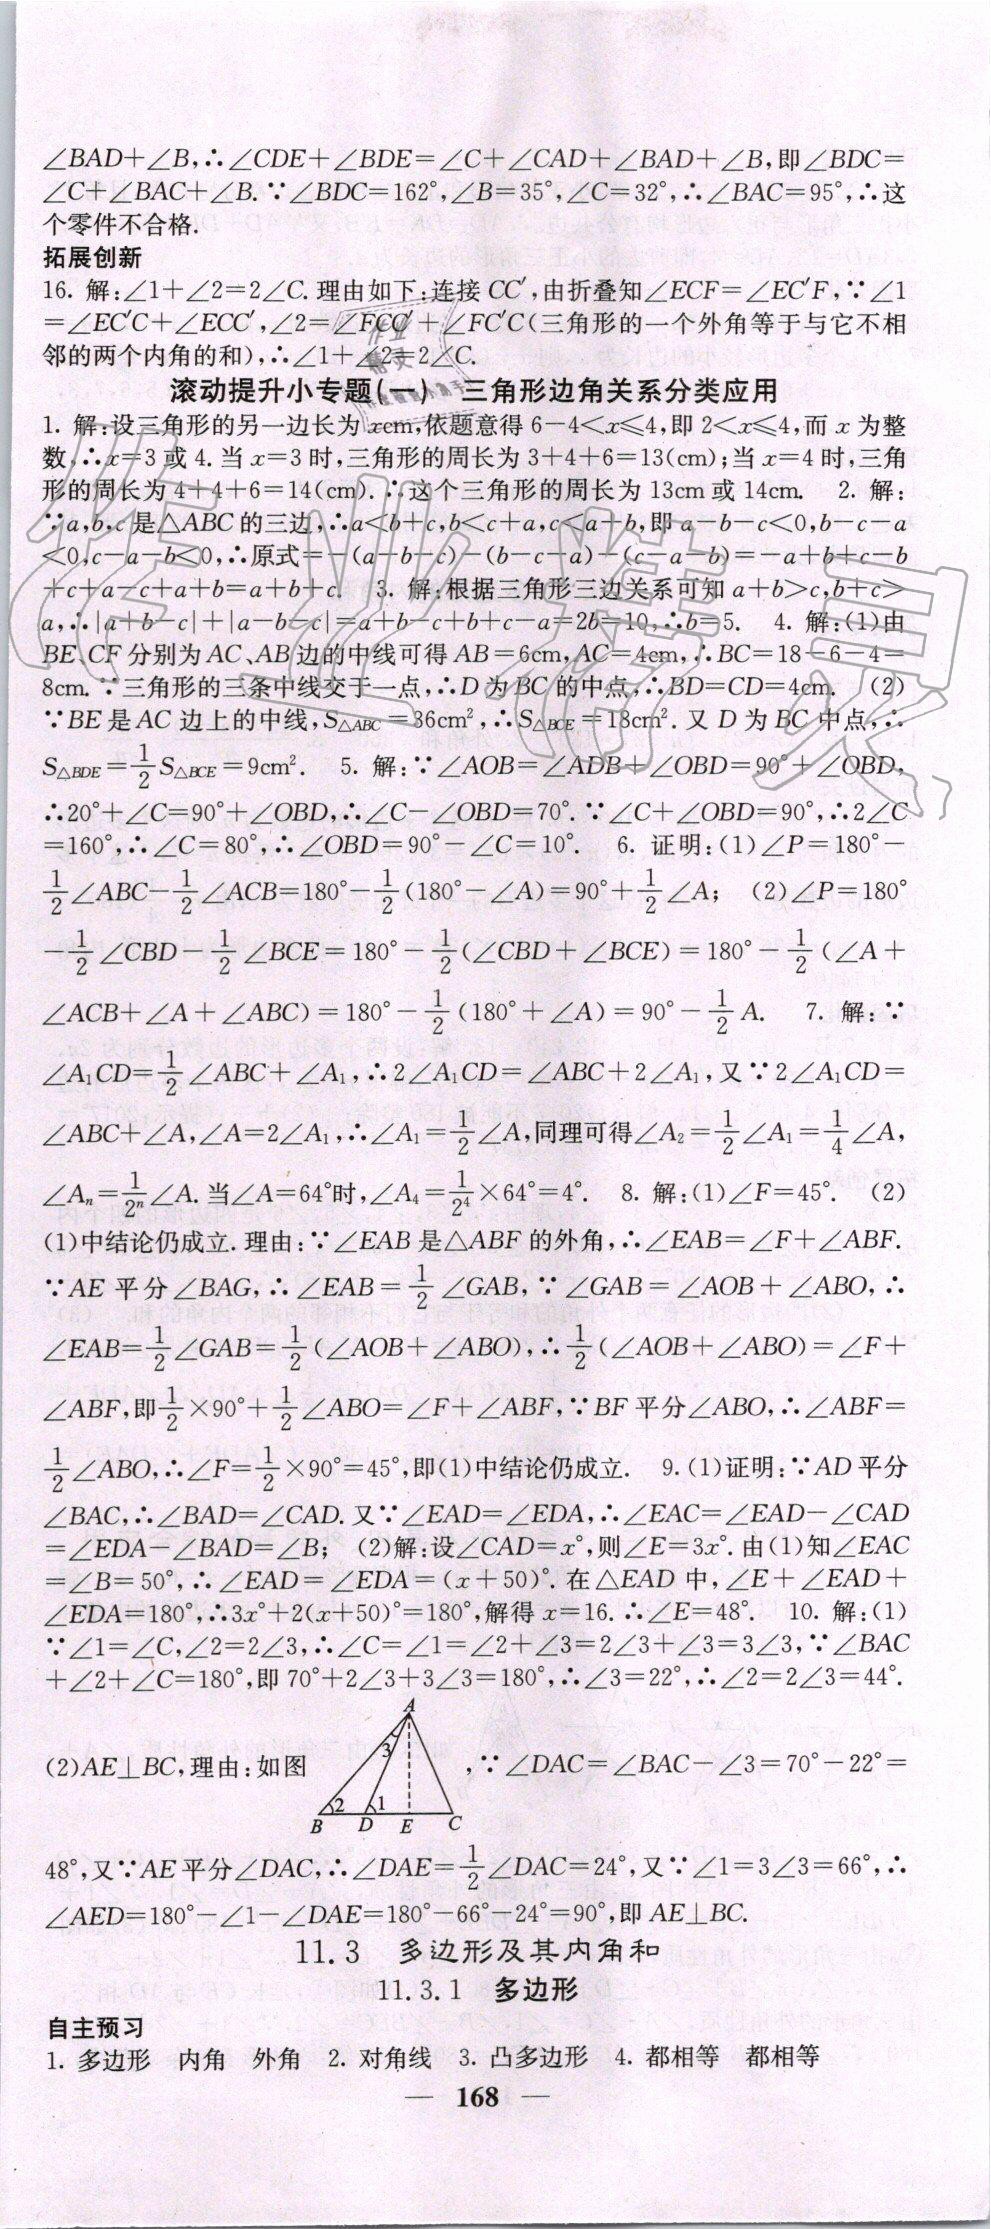 ∠BAD+∠B,∴∠CDE+∠BDE=∠C+∠CAD+∠BAD+∠B,即∠BDC=
∠C+∠BAC+∠B.∵∠BDC=162°,∠B=35°,∠C=32°,∴∠BAC=95°,∴这
个零件不合格.
拓展创新
16. 解:∠1+∠2=2∠C.理由如下:连接CC′,由折叠知∠ECF=∠EC′F,∵∠1
=∠EC′C+∠ECC′,∠2=∠FCC′+∠FC′C(三角形的一个外角等于与它不相
邻的两个内角的和),∴∠1+∠2=2∠C.
滚动提升小专题(一) 三角形边角关系分类应用
1. 解:设三角形的另一边长为xcm,依题意得6-4<x≤4,即2<x≤4,而x为整
数,∴x=3或4.当x=3时,三角形的周长为3+4+6=13(cm);当x=4时,三角
形的周长为4+4+6=14(cm).∴这个三角形的周长为13cm或14cm. 2. 解:
∵a,b,c是△ABC的三边,∴a<b+c,b<c+a,c<a+b,即a-b-c<0,b-c-a
<0,c-a-b<0,∴原式=-(a-b-c)-(b-c-a)-(c-a-b)=-a+b+c-b
+c+a-c+a+b=a+b+c. 3. 解:根据三角形三边关系可知a+b>c,b+c>
a,∴|a+b-c|+|a-b-c|=a+b-c+b+c-a=2b=10,∴b=5. 4. 解:(1)由
BE、CF分别为AC、AB边的中线可得AB=6cm,AC=4cm,∴BC=18-6-4=
8cm.∵三角形的三条中线交于一点,∴D为BC的中点,∴BD=CD=4cm. (2)
∵BE是AC边上的中线,S△ABC=36cm²,∴S△BCE=18cm².又D为BC中点,∴
S△BDE=1/2S△BCE=9cm². 5. 解:∵∠AOB=∠ADB+∠OBD=90°+∠OBD,
∴20°+∠C=90°+∠OBD,∴∠C-∠OBD=70°.∵∠C+∠OBD=90°,∴2∠C
=160°,∴∠C=80°,∴∠OBD=90°-∠C=10°. 6. 证明:(1)∠P=180°-
1/2∠ABC-1/2∠ACB=180°-1/2(180°-∠A)=90°+1/2∠A; (2)∠P=180°
-1/2∠CBD-1/2∠BCE=180°-1/2(∠CBD+∠BCE)=180°-1/2(∠A+
∠ACB+∠A+∠ABC)=180°-1/2(180°+∠A)=90°-1/2A. 7. 解:∵
∠A₁CD=1/2∠ABC+∠A₁,∴2∠A₁CD=∠ABC+2∠A₁,又∵2∠A₁CD=
∠ABC+∠A,∠A=2∠A₁,∴∠A₁=1/2∠A,同理可得∠A₂=1/2∠A₁=1/4∠A,
∠Aₙ=1/2ⁿ∠A.当∠A=64°时,∠A₄=1/2⁴×64°=4°. 8. 解:(1)∠F=45°. (2)
(1)中结论仍成立.理由:∵∠EAB是△ABF的外角,∴∠EAB=∠F+∠ABF.
∵AE平分∠BAG,∴∠EAB=1/2∠GAB,∵∠GAB=∠AOB+∠ABO,∴
∠EAB=1/2∠GAB=1/2(∠AOB+∠ABO),∴1/2(∠AOB+∠ABO)=∠F+
∠ABF,即1/2×90°+1/2∠ABO=∠F+∠ABF,∵BF平分∠ABO,∴∠ABF=
1/2∠ABO,∴∠F=1/2×90°=45°,即(1)中结论仍成立. 9.(1)证明:∵AD平分
∠BAC,∴∠BAD=∠CAD.又∵∠EAD=∠EDA,∴∠EAC=∠EAD-∠CAD
=∠EDA-∠BAD=∠B; (2)解:设∠CAD=x°,则∠E=3x°.由(1)知∠EAC
=∠B=50°,∴∠EAD=∠EDA=(x+50)°.在△EAD中,∠E+∠EAD+
∠EDA=180°,∴3x°+2(x+50)°=180°,解得x=16.∴∠E=48°. 10. 解:(1)
∵∠1=∠C,∠2=2∠3,∴∠C=∠1=∠2+∠3=2∠3+∠3=3∠3,∵∠BAC
+∠2+∠C=180°,即70°+2∠3+3∠3=180°,∴∠3=22°,∴∠2=2∠3=44°.
A
3
(2)AE⊥BC,理由:如图 ,∵∠DAC=∠BAC-∠3=70°-22°=
2 1
B D E C
48°,又∵AE平分∠DAC,∴∠DAE=1/2∠DAC=24°,又∵∠1=3∠3=66°,∴
∠AED=180°-∠1-∠DAE=180°-66°-24°=90°,即AE⊥BC.
11.3 多边形及其内角和
11.3.1 多边形
自主预习
1. 多边形 内角 外角 2. 对角线 3. 凸多边形 4. 都相等 都相等
— 168 —
作业精灵